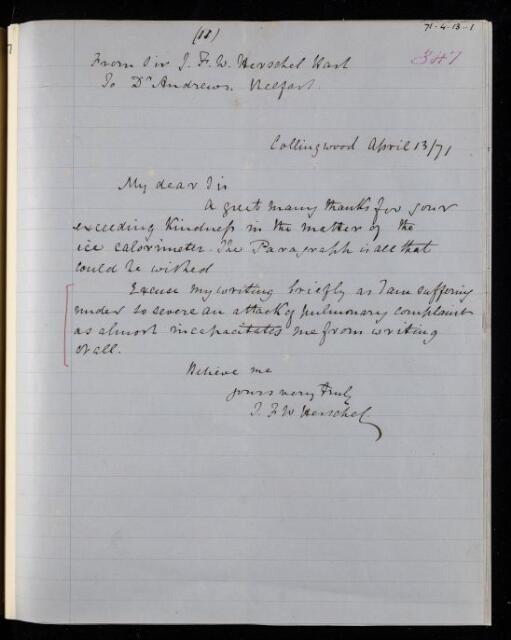 (18)
71-4-13-1
From Sir J. F. W. Herschel Bart
347
To Dr Andrews. Belfast.
Collingwood April 13/71
My dear Sir
A great many thanks for your
exceeding kindness in the matter of the
ice calorimeter. The Paragraph is all that
could be wished
Excuse my writing briefly as I am suffering
under so severe an attack of pulmonary complaint
as almost incapacitates me from writing
at all.
Believe me
yours very truly
J. F. W Herschel.